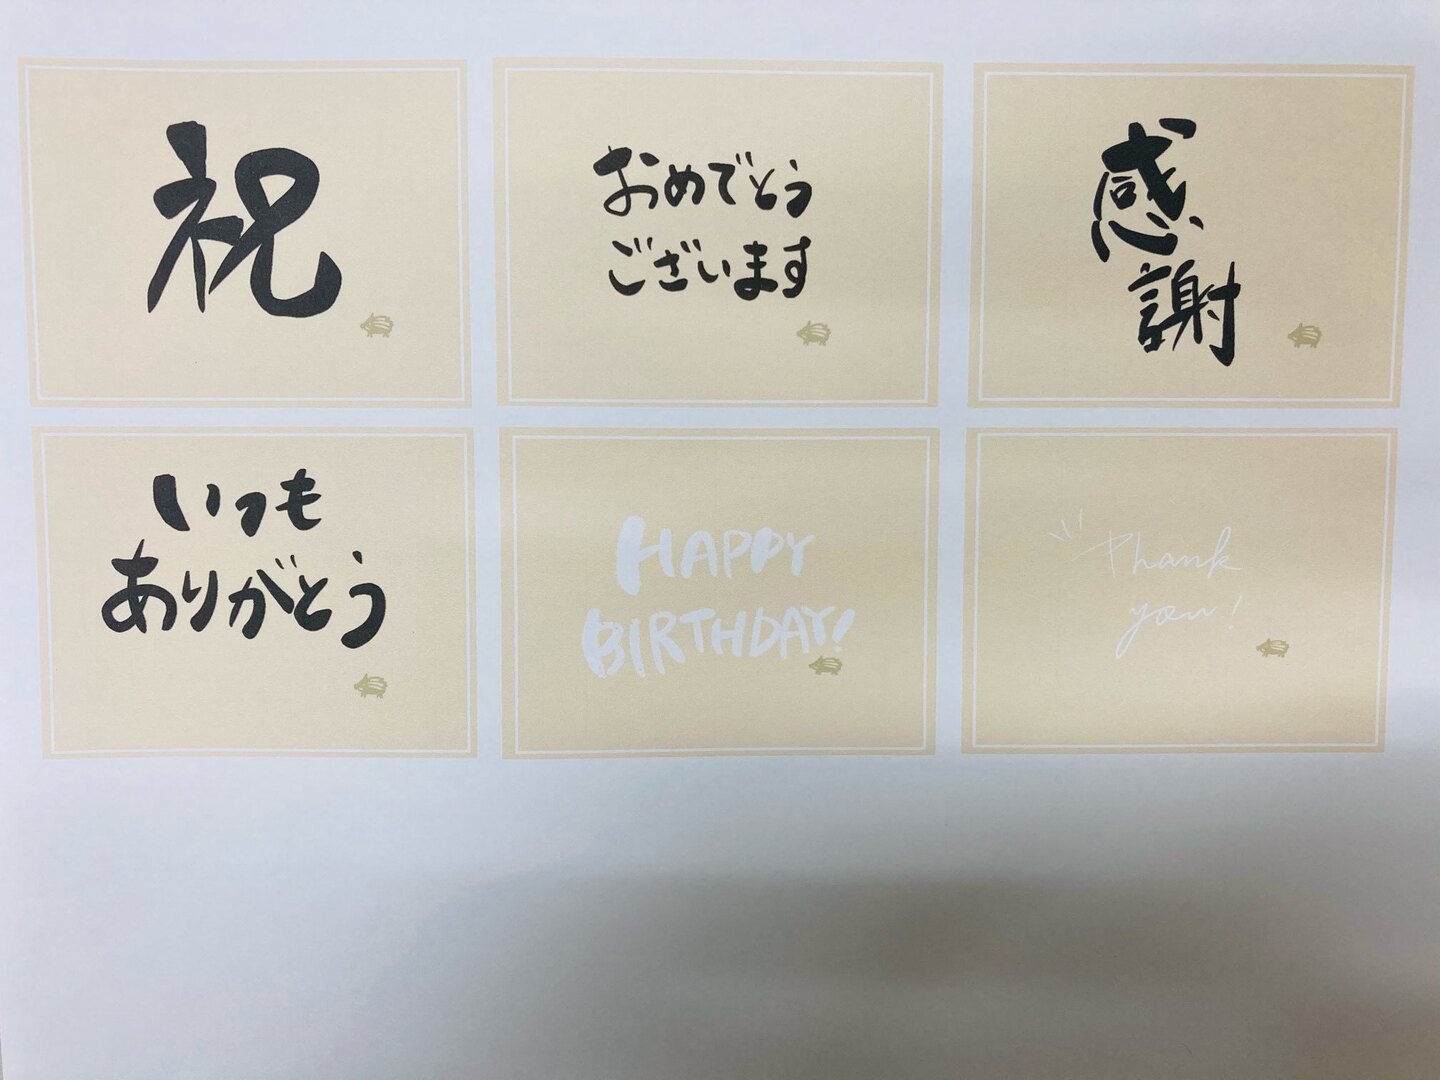 祝
おめでとう
ございます
感
謝
いつも
ありがとう
HAPPY
BIRTHDAY!
Thank
you!